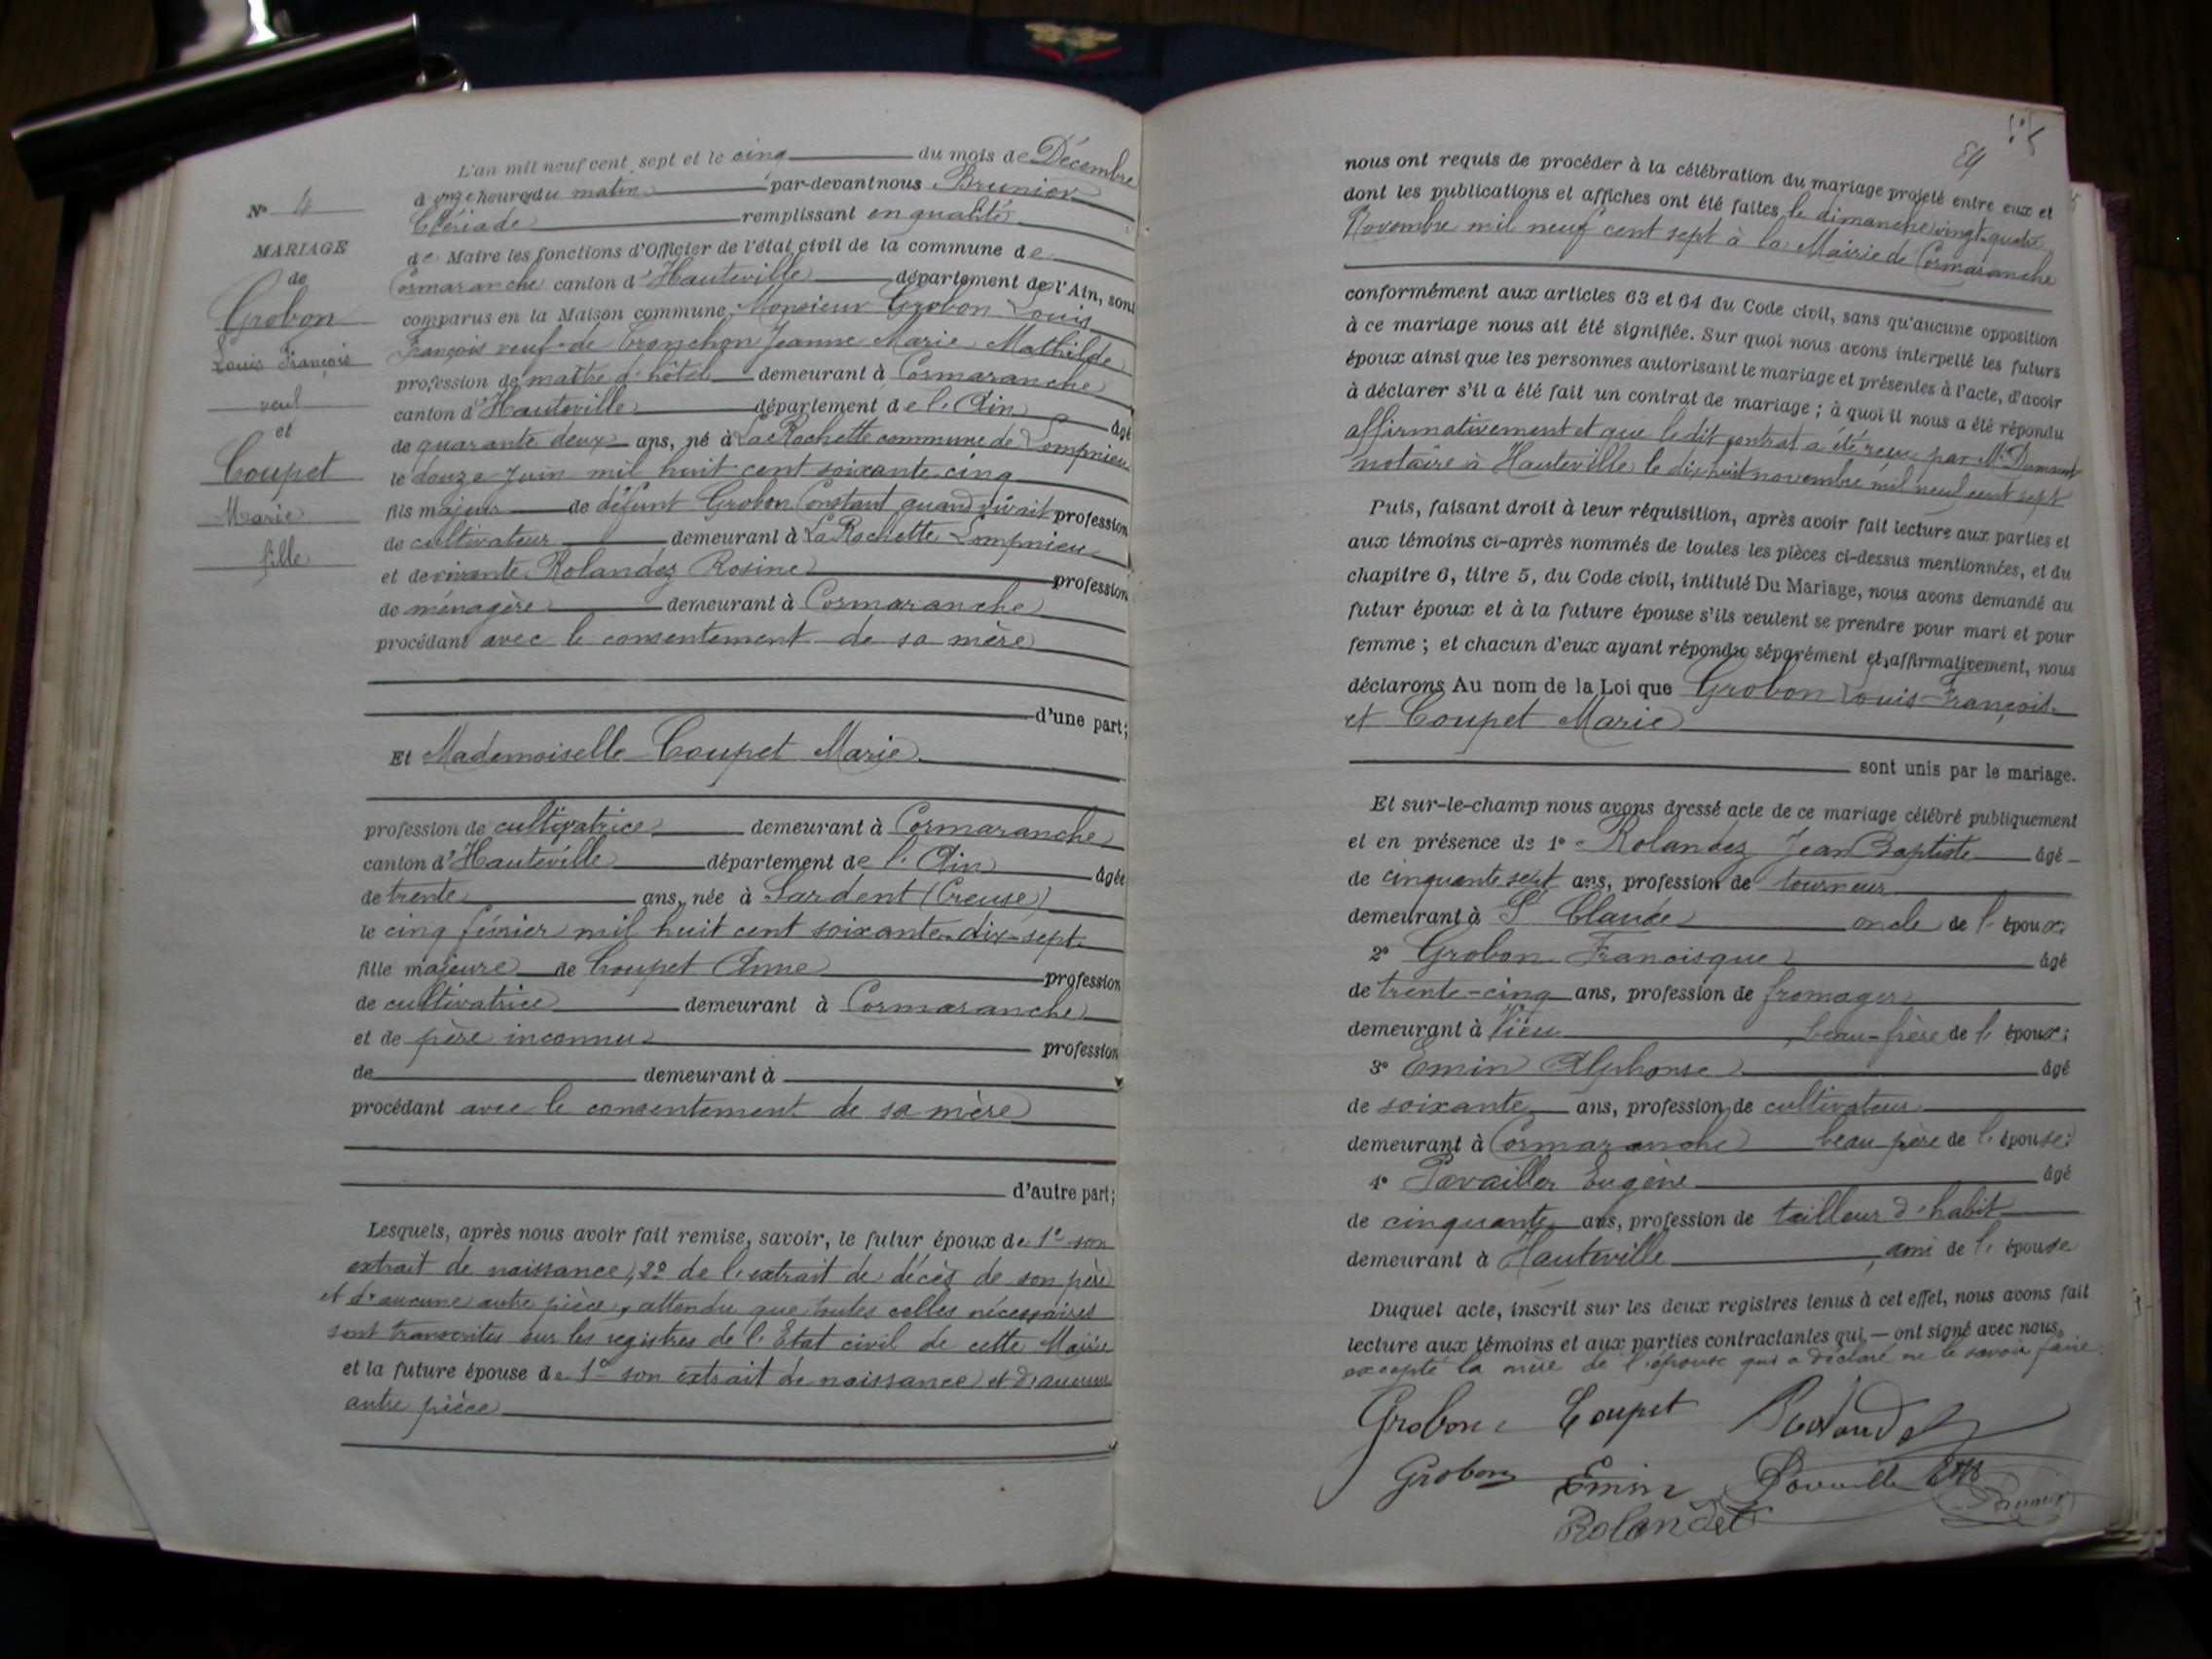 L'an mil neuf cent sept et le cinq du mois de Décembre
à onze heures du matin par-devant nous Brunier
Clériade remplissant en qualité
de Maire les fonctions d'Officier de l'état civil de la commune de
Cormaranche canton d'Hauteville département de l'Ain, sont
comparus en la Maison commune, Monsieur Grobon Louis
François veuf de Tronchon Jeanne Marie Mathilde
profession de maître d'hôtel demeurant à Cormaranche
canton d'Hauteville département de l'Ain âgé
de quarante deux ans, né à La Rochette commune de Lompnieu
le douze Juin mil huit cent soixante cinq
fils majeur de défunt Grobon Constant quand vivait profession
de cultivateur demeurant à La Rochette Lompnieu
et de vivante Rolandez Rosine profession
de ménagère demeurant à Cormaranche
procédant avec le consentement de sa mère
d'une part;
Et Mademoiselle Coupet Marie
profession de cultivatrice demeurant à Cormaranche
canton d'Hauteville département de l'Ain âgée
de trente ans, née à Sardent (Creuse)
le cinq février mil huit cent soixante-dix-sept
fille majeure de Coupet Anne profession
de cultivatrice demeurant à Cormaranche
et de père inconnu profession
de demeurant à
procédant avec le consentement de sa mère
d'autre part;
Lesquels, après nous avoir fait remise, savoir, le futur époux de 1º son
extrait de naissance, 2º de l'extrait de décès de son père
et d'aucune autre pièce, attendu que toutes celles nécessaires
sont transcrites sur les registres de l'Etat civil de cette Mairie
et la future épouse de 1º son extrait de naissance et d'aucune
autre pièce
Nº 4
MARIAGE
de
Grobon
Louis François
veuf
et
Coupet
Marie
fille
nous ont requis de procéder à la célébration du mariage projeté entre eux et
dont les publications et affiches ont été faites le dimanche vingt-quatre
Novembre mil neuf cent sept à la Mairie de Cormaranche
conformément aux articles 63 et 64 du Code civil, sans qu'aucune opposition
à ce mariage nous ait été signifiée. Sur quoi nous avons interpellé les futurs
époux ainsi que les personnes autorisant le mariage et présentes à l'acte, d'avoir
à déclarer s'il a été fait un contrat de mariage; à quoi il nous a été répondu
affirmativement et que le dit contrat a été reçu par Me
notaire à Hauteville le dix huit novembre mil neuf cent sept
Puis, faisant droit à leur réquisition, après avoir fait lecture aux parties et
aux témoins ci-après nommés de toutes les pièces ci-dessus mentionnées, et du
chapitre 6, titre 5, du Code civil, intitulé Du Mariage, nous avons demandé au
futur époux et à la future épouse s'ils veulent se prendre pour mari et pour
femme; et chacun d'eux ayant répondu séparément et affirmativement, nous
déclarons Au nom de la Loi que Grobon Louis-François
et Coupet Marie
sont unis par le mariage.
Et sur-le-champ nous avons dressé acte de ce mariage célébré publiquement
et en présence de 1º Rolandez Jean Baptiste âgé
de cinquante sept ans, profession de tourneur
demeurant à St Claude oncle de l'époux;
2º Grobon Francisque âgé
de trente-cinq ans, profession de fromager
demeurant à Vieu, beau-frère de l'époux;
3º Emin Alphonse âgé
de soixante ans, profession de cultivateur
demeurant à Cormaranche beau père de l'épouse;
4º Pavailler Eugène âgé
de cinquante ans, profession de tailleur d'habit
demeurant à Hauteville, ami de l'épouse
Duquel acte, inscrit sur les deux registres tenus à cet effet, nous avons fait
lecture aux témoins et aux parties contractantes qui — ont signé avec nous,
excepté la mère de l'épouse qui a déclaré ne le savoir faire.
Grobon Coupet
Grobon Emin